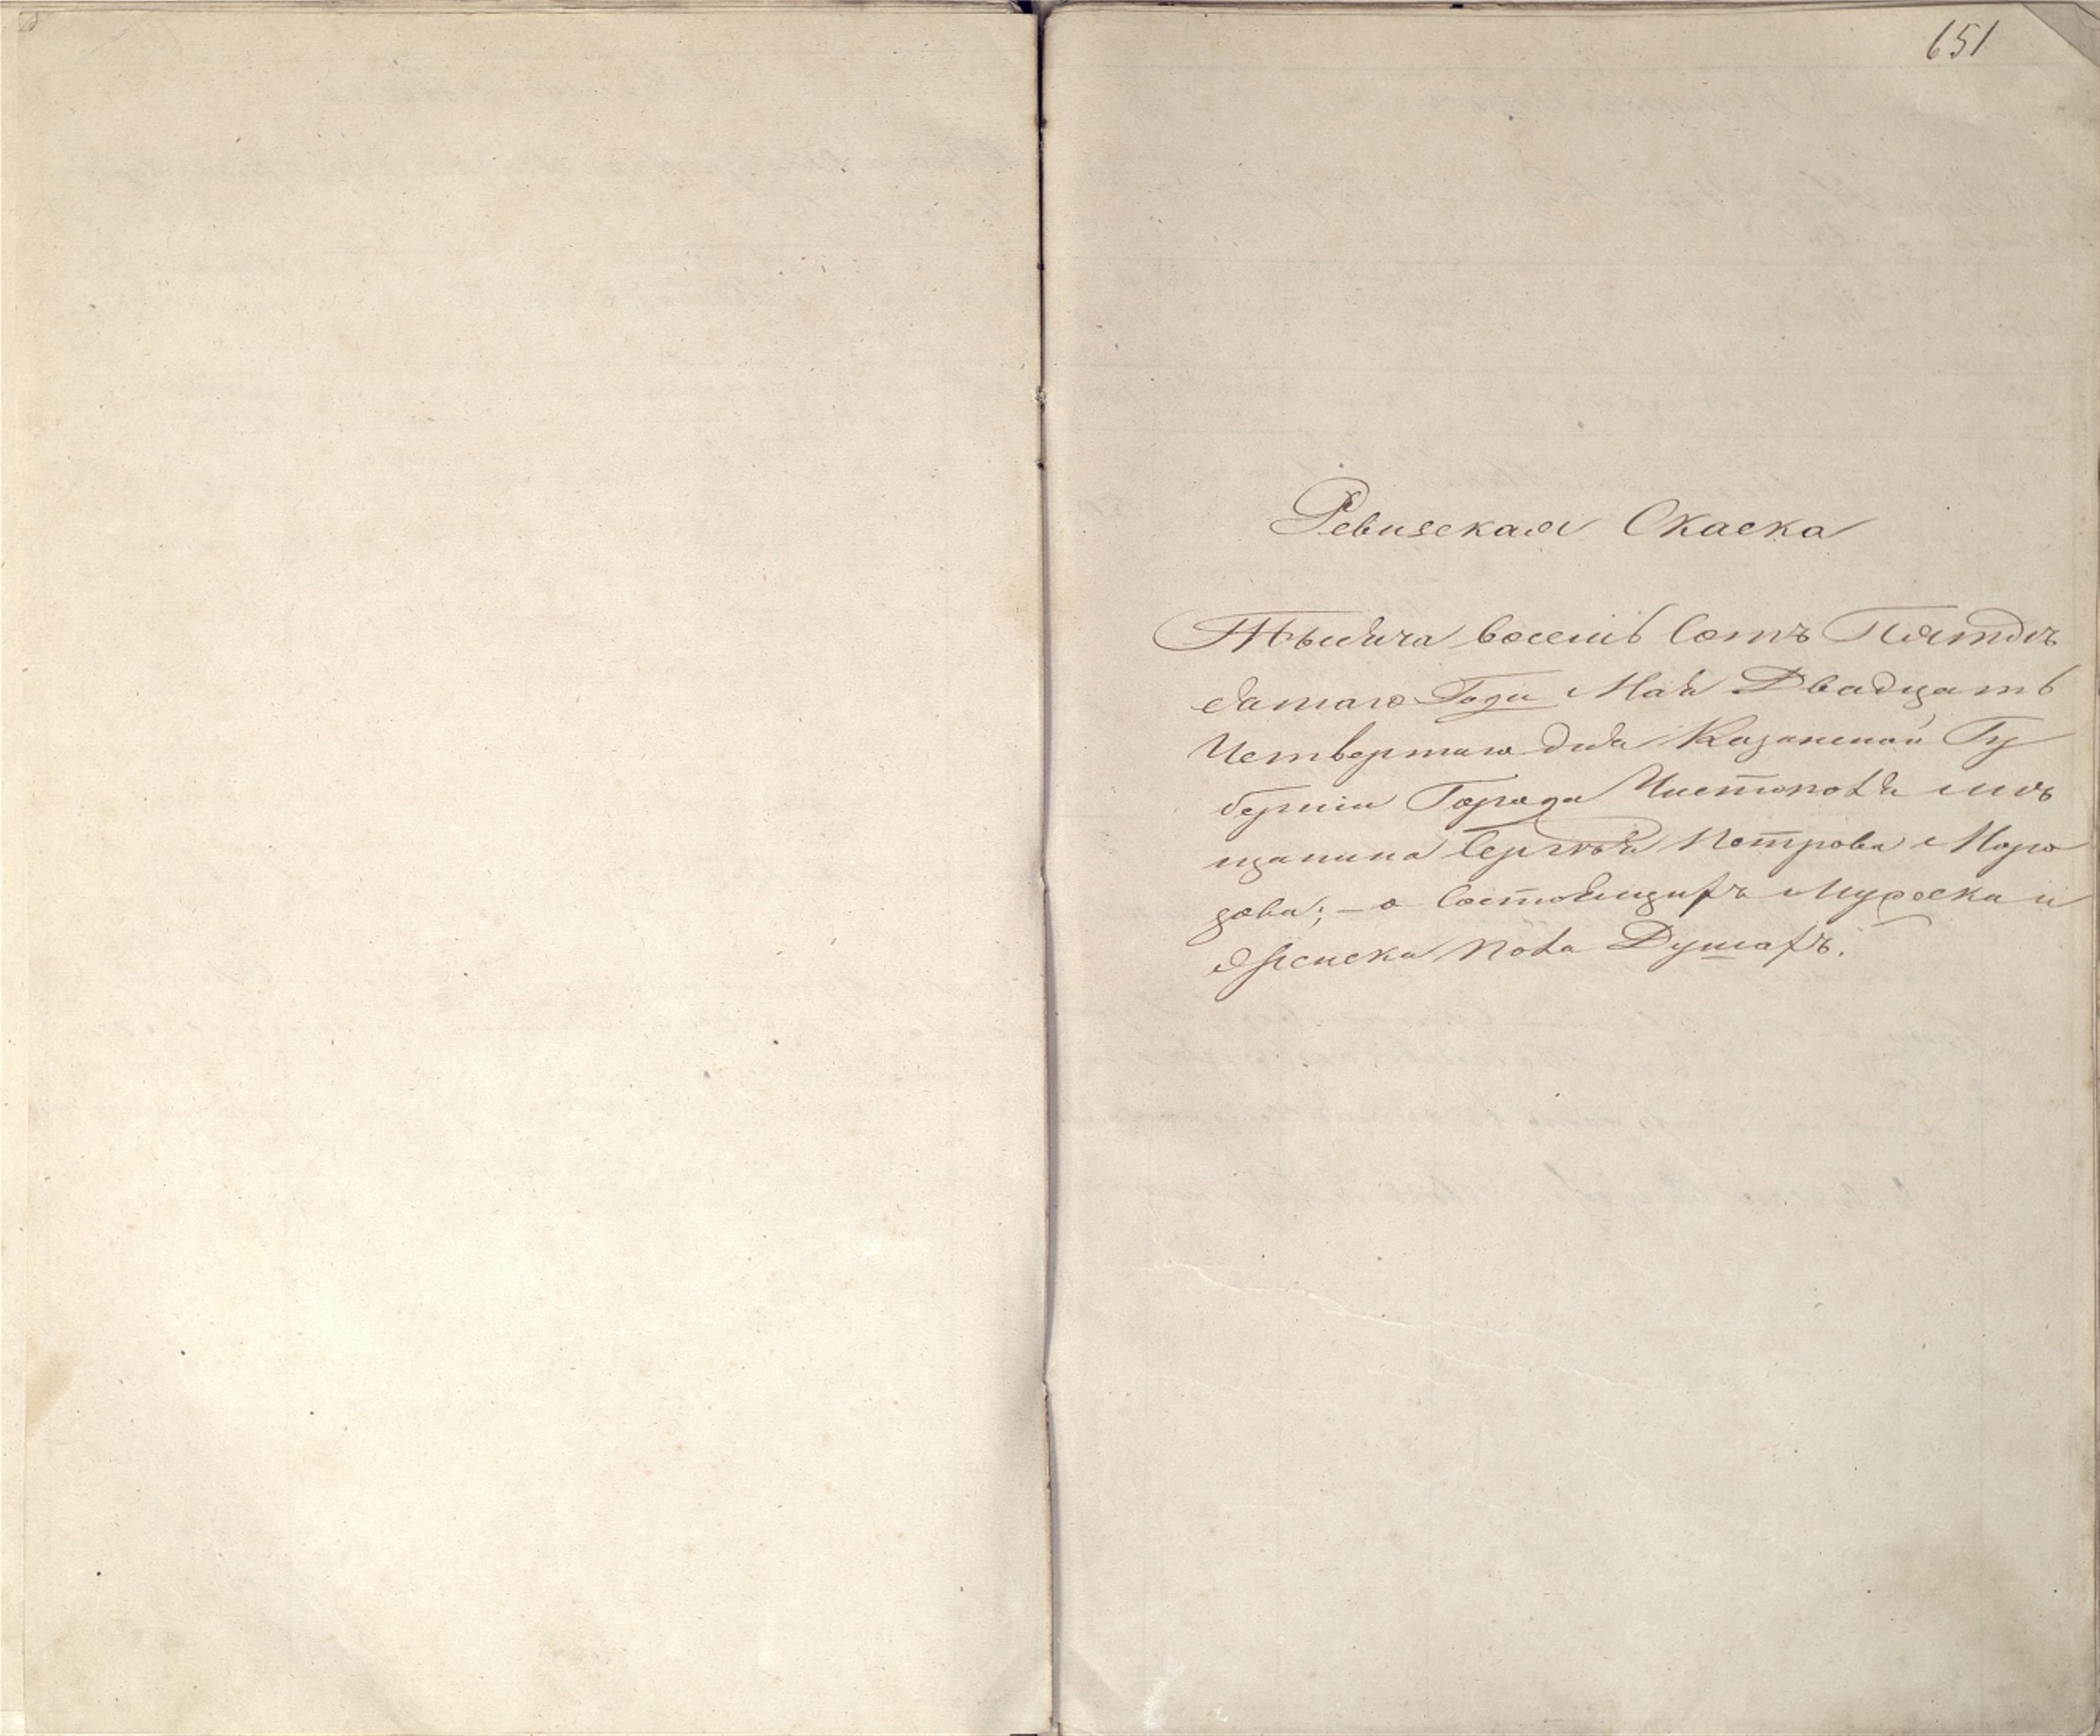 651
Ревизская Скаска
Тысяча восемь Сотъ Пятде
сятаго Года Мая Двадцать
Четвертаго дня Казанской Гу
берніи Города Чистополя мѣ
щанина Сергѣя Петрова Моро
зова; – о Состоящихъ Мужеска и
Женска пола Душахъ.